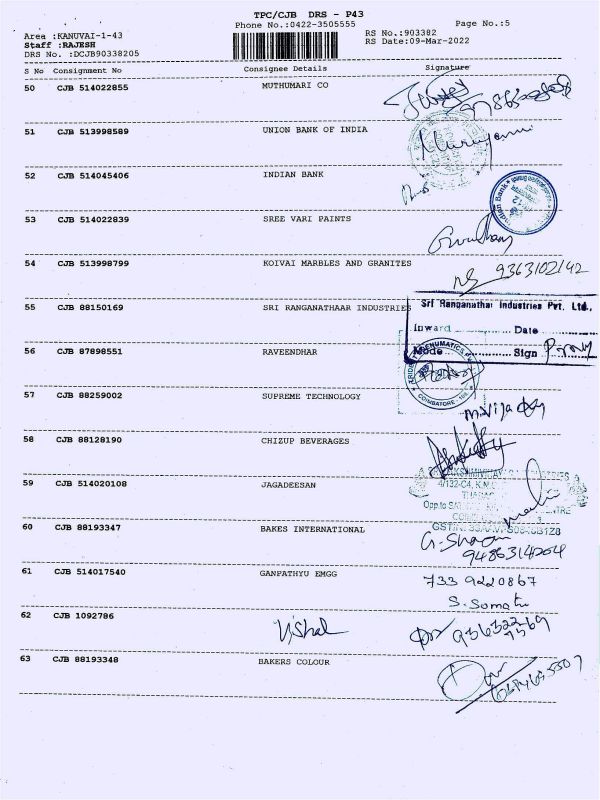 TPC/CJB DRS - P43
Phone No.:0422-3505555
Page No.:5
Area :KANUVAI-1-43
Staff :RAJESH
DRS No. :DCJB90338205
RS No.:903382
RS Date:09-Mar-2022
S No Consignment No Consignee Details Signature
50 CJB 514022855 MUTHUMARI CO
51 CJB 513998589 UNION BANK OF INDIA
52 CJB 514045406 INDIAN BANK
Indian Bank
53 CJB 514022839 SREE VARI PAINTS
54 CJB 513998799 KOIVAI MARBLES AND GRANITES
9363102142
55 CJB 88150169 SRI RANGANATHAAR INDUSTRIES
Sri Ranganathar Industries Pvt. Ltd.,
Inward Date
Mode Sign
56 CJB 87898551 RAVEENDHAR
COIMBATORE
57 CJB 88259002 SUPREME TECHNOLOGY
58 CJB 88128190 CHIZUP BEVERAGES
59 CJB 514020108 JAGADEESAN
4/132-C4, K.N.
Opp.to
60 CJB 88193347 BAKES INTERNATIONAL
G. Sharan
9486314204
61 CJB 514017540 GANPATHYU EMGG
733 9220867
S. Somatu
62 CJB 1092786 Vishal
63 CJB 88193348 BAKERS COLOUR